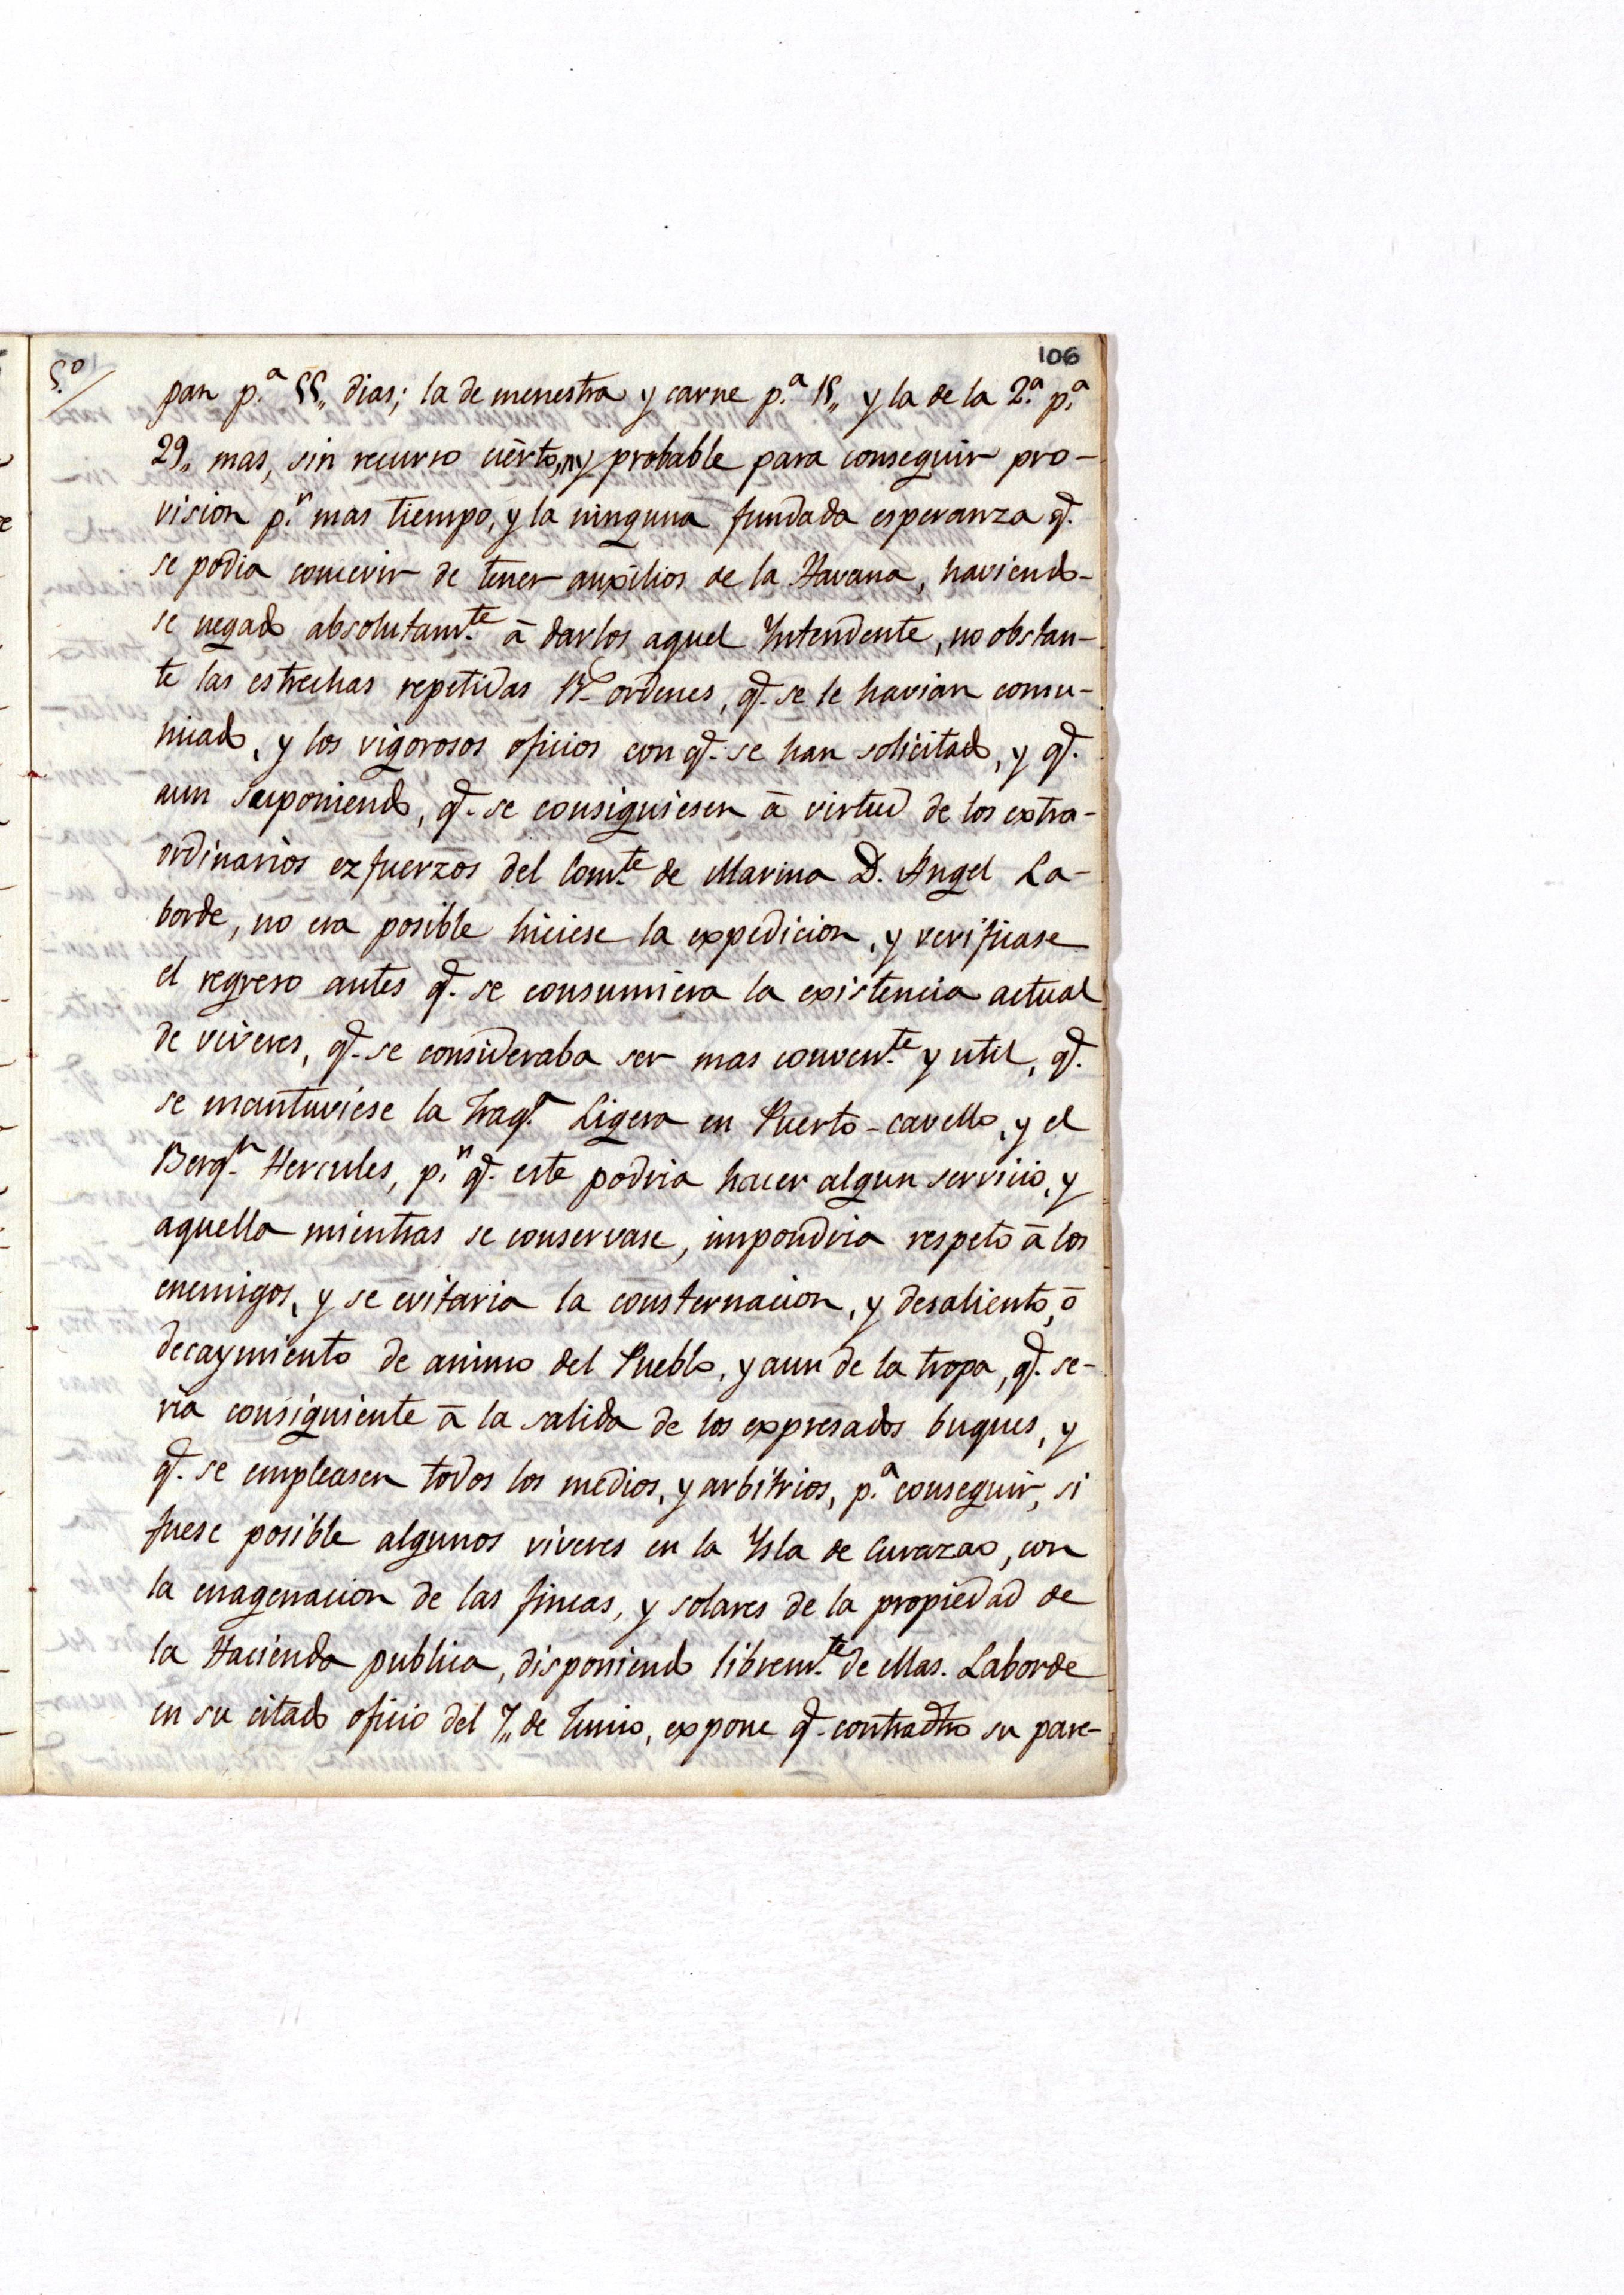 106
5.º/
pan p.ª 55,, dias; la de menestra y carne p.ª 15,, y la de la 2.ª p.ª
29,, mas, sin recurso cierto, ny probable para conseguir pro-
vision p.ª mas tiempo, y la ninguna fundada esperanza q.
se podia concevir de tener auxilios de la Havana, haviendo-
se negado absolutam.te á darlos aquel Yntendente, no obstan-
te las estrechas repetidas R.s ordenes, q. se le havian comu-
nicado, y los vigorosos oficios con q. se han solicitado, y q.
aun suponiendo, q. se consiguiesen á virtud de los extra-
ordinarios ezfuerzos del Com.te de Marina D. Angel La-
borde, no era posible hiciese la expedicion, y verificase
el regreso antes q. se consumiera la existencia actual
de viveres, q. se consideraba ser mas conven.te y util, q.
se mantuviese la Frag.ª Ligera en Puerto-cavello, y el
Berg.n Hercules, p.r q. este podria hacer algun servicio, y
aquella mientras se conservase, impondria respeto á los
enemigos, y se evitaria la consternacion, y desaliento, ó
decaymiento de animo del Pueblo, y aun de la tropa, q. se-
ria consiguiente á la salida de los expresados buques, y
q. se empleasen todos los medios, y arbitrios, p.ª conseguir, si
fuese posible algunos viveres en la Ysla de Curazao, con
la enagenacion de las fincas, y solares de la propiedad de
la Hacienda publica, disponiendo librem.te de ellas. Laborde
en su citado oficio del 7,, de Junio, expone q. contradho su pare-